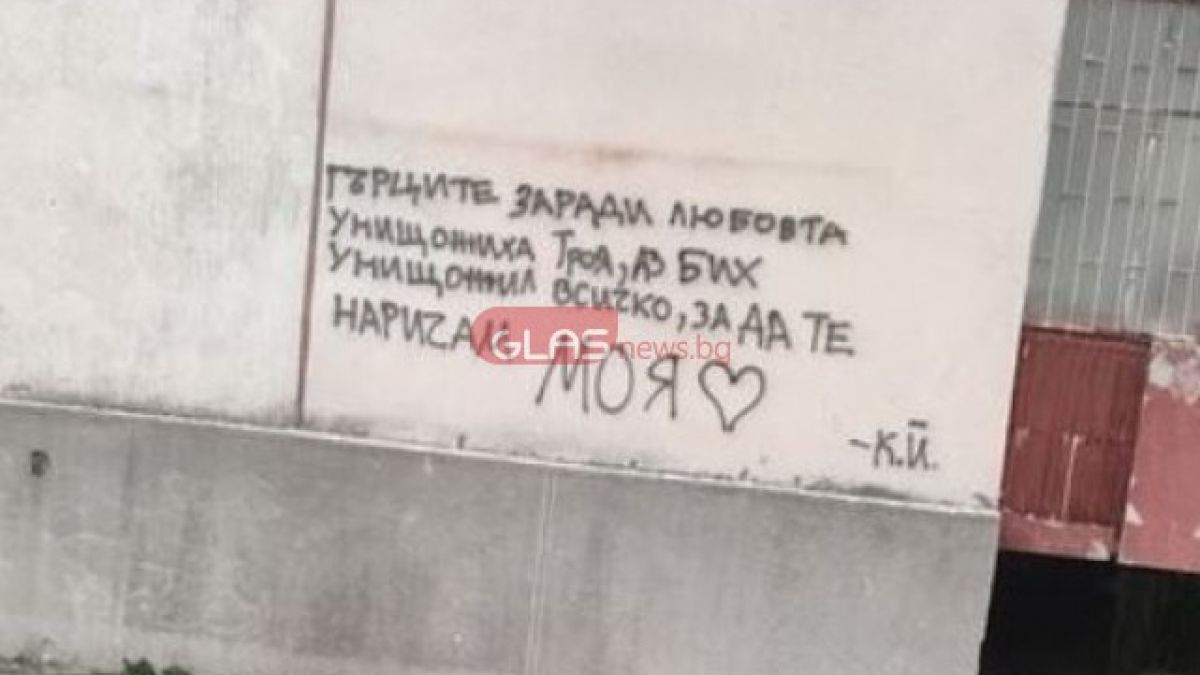 ГЪРЦИТЕ ЗАРАДИ ЛЮБОВТА
УНИЩОЖИХА ТРОЯ, АЗ БИХ
УНИЩОЖИЛ ВСИЧКО, ЗА ДА ТЕ
НАРИЧАМ
GLASnews.bg
МОЯ♡
-К.Й.